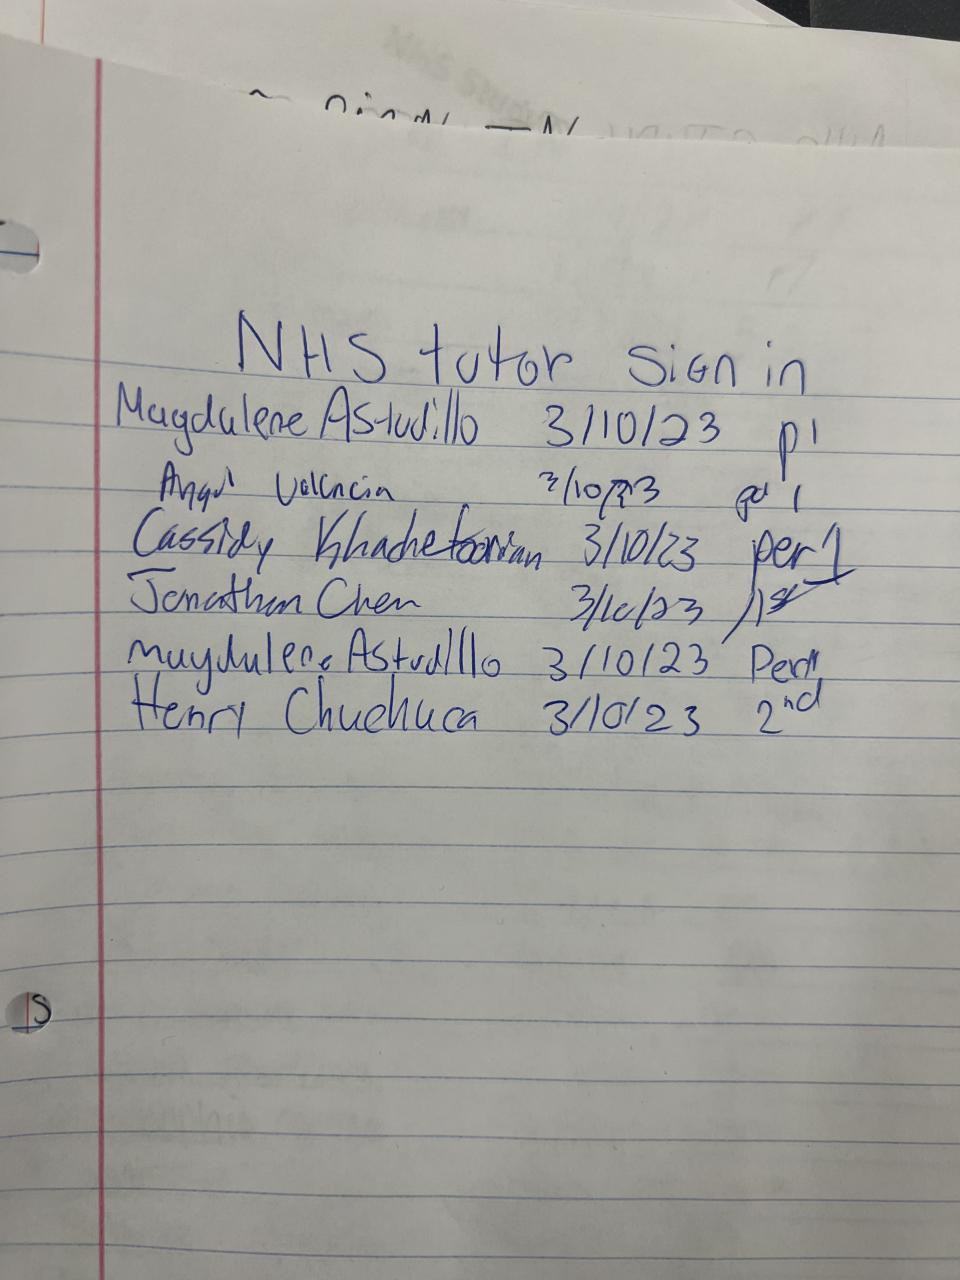 NHS tutor sign in
Magdalene Astudillo 3/10/23 p1
Angel Valencia 3/10/23 pd 1
Cassidy 3/10/23 per 1
Jonathan Chen 3/10/23 1st
magdalene Astudillo 3/10/23 Per
Henry Chuehuca 3/10/23 2nd